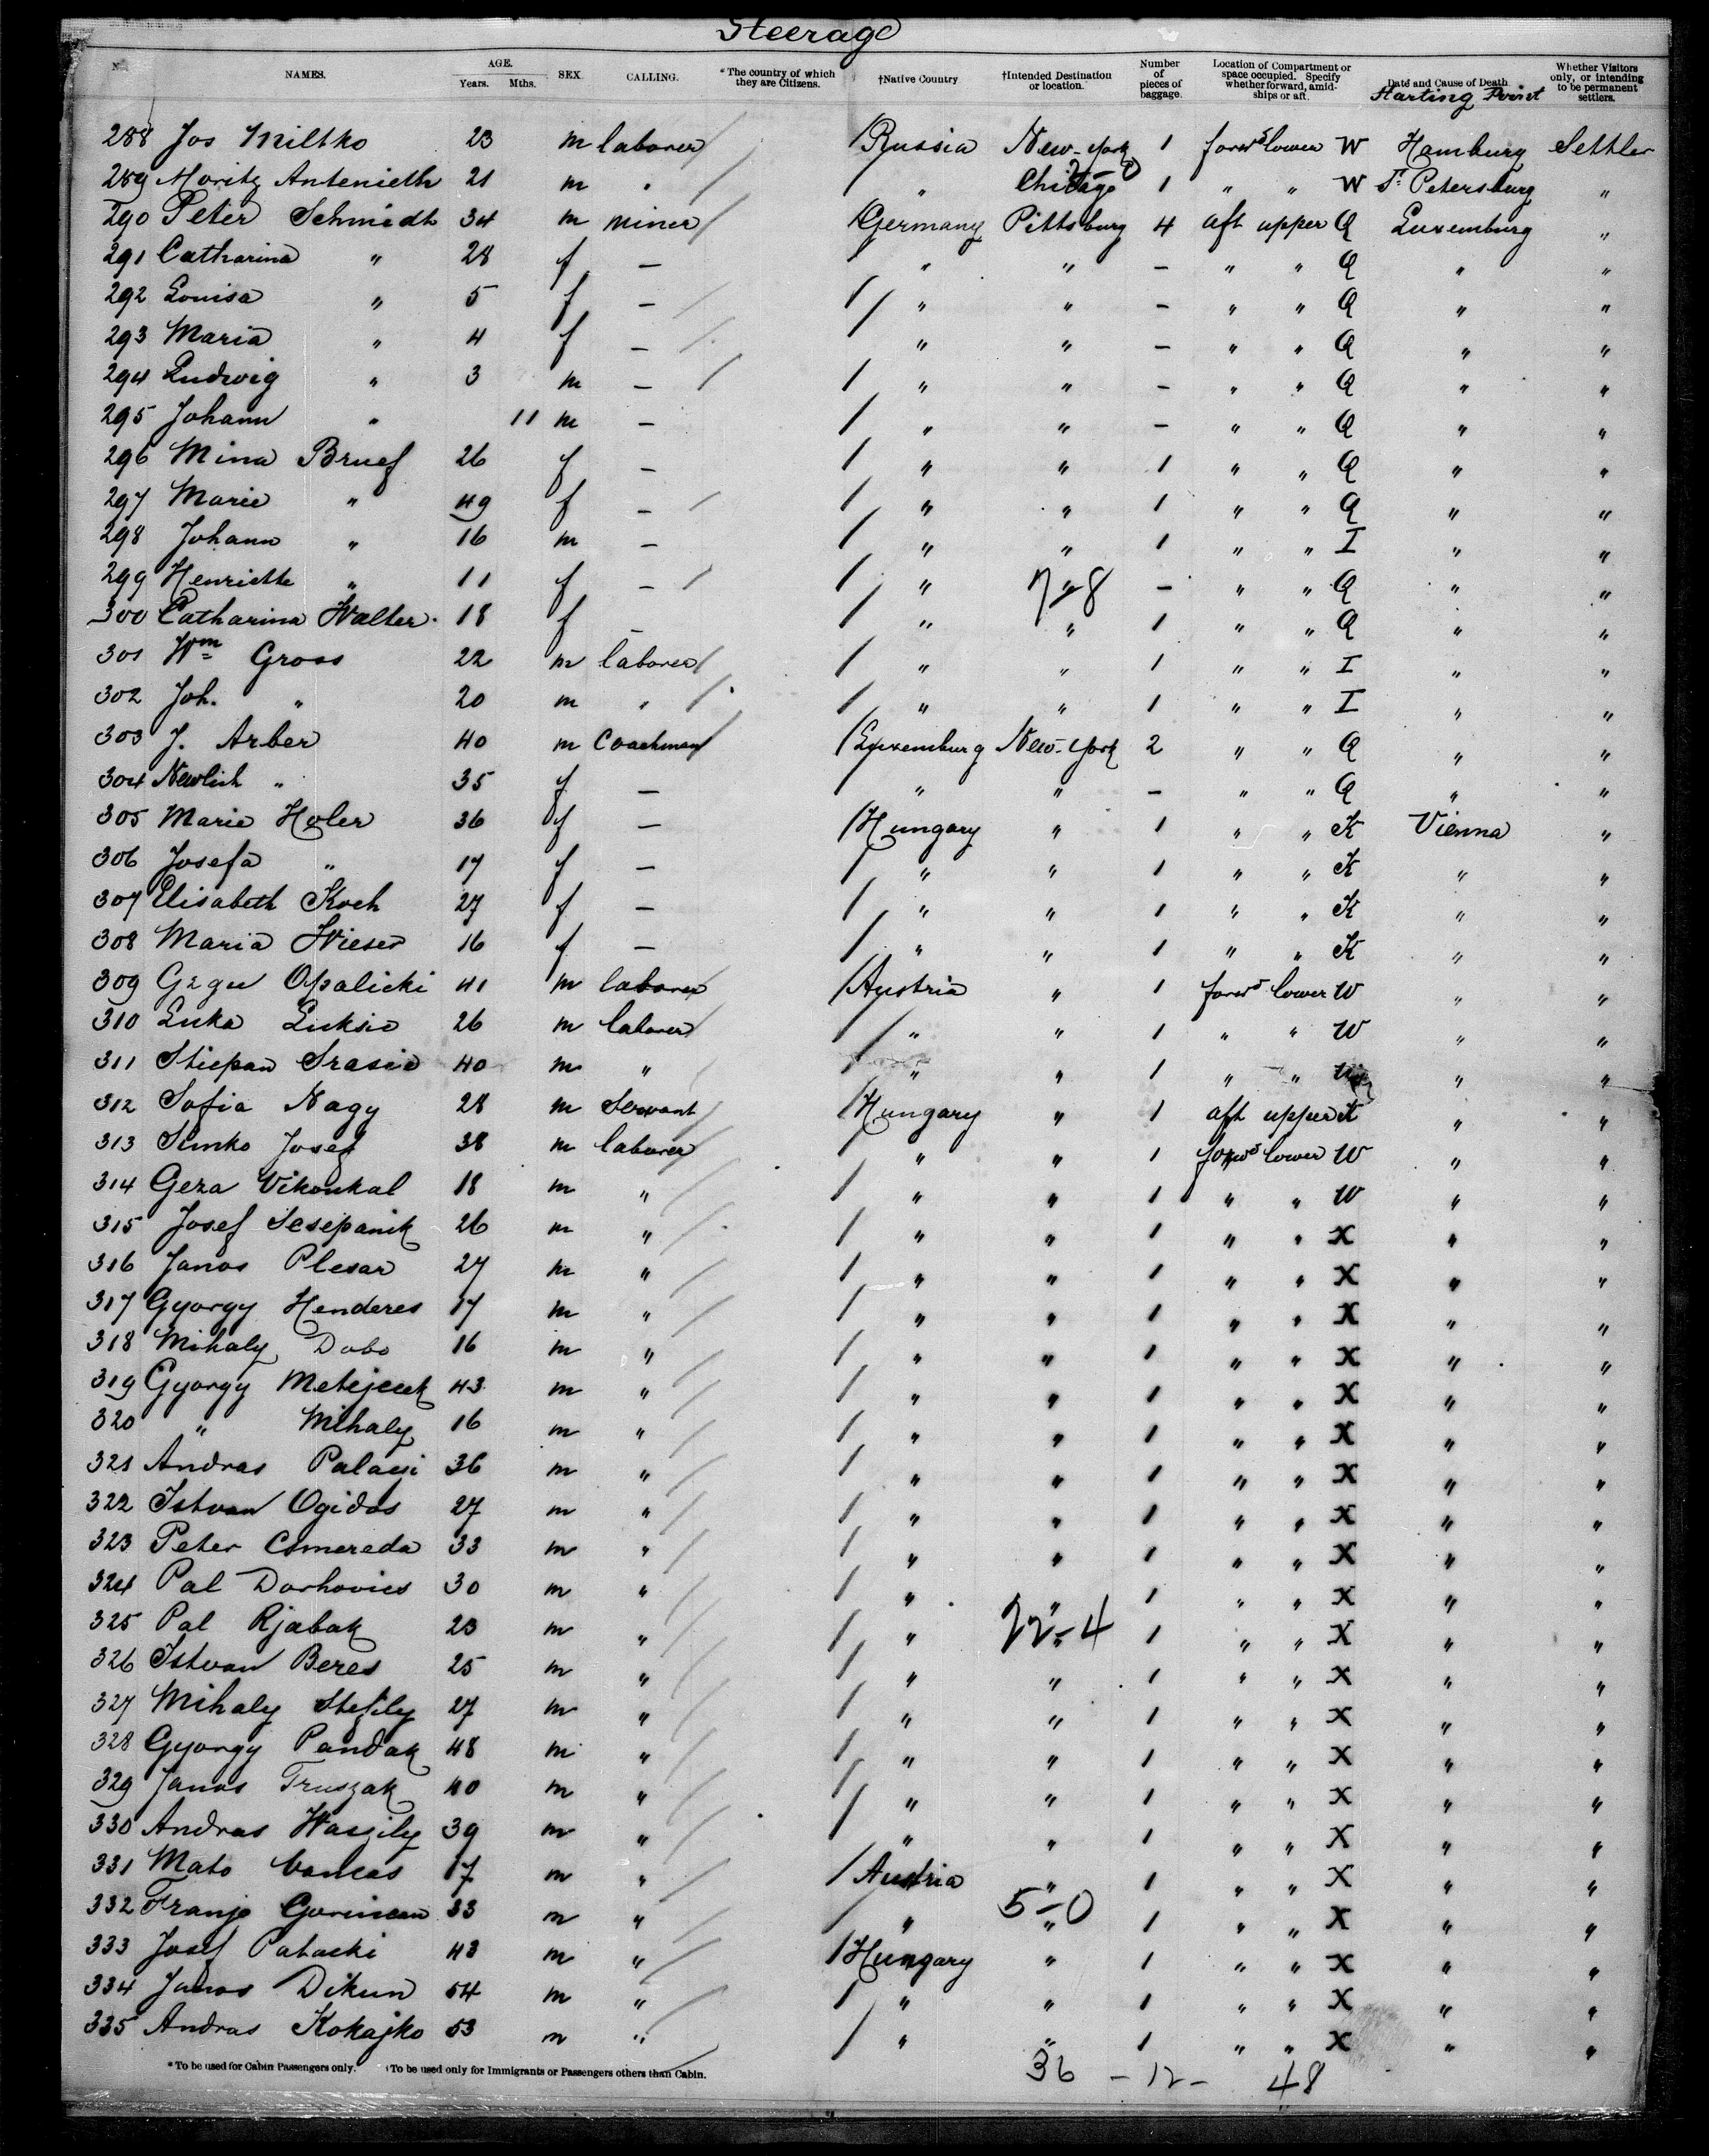 Steerage
No. NAMES. AGE. Years. Mths. SEX. CALLING. *The country of which they are Citizens. †Native Country †Intended Destination or location. Number of pieces of baggage. Location of Compartment or space occupied. Specify whether forward, amidships or aft. Date and Cause of Death Starting Point Whether Visitors only, or intending to be permanent settlers.
288 Jos Miltko 23 m laborer / / Russia New-York 1 forwd lower W Hamburg Settler
289 Moritz Antenieth 21 m " / " Chicago 1 " " W St Petersburg "
290 Peter Schmidt 34 m miner / / Germany Pittsburg 4 aft upper Q Luxemburg "
291 Catharina " 28 f — " " – " " Q " "
292 Louisa " 5 f — / / " " – " " Q " "
293 Maria " 4 f — / / " " – " " Q " "
294 Ludwig " 3 m — / / " " – " " Q " "
295 Johann " 11 m — / " " – " " Q " "
296 Mina Bruef 26 f — / " " 1 " " Q " "
297 Marie " 49 f — / / " " 1 " " Q " "
298 Johann " 16 m — / " " 1 " " I " "
299 Henriette " 11 f — / / " 7-8 – " " Q " "
300 Catharina Walter 18 f – / " " 1 " " Q " "
301 Wm Gross 22 m laborer / / " " 1 " " I " "
302 Joh. " 20 m " / / " " 1 " " I " "
303 J. Arber 40 m Coachman / / Luxemburg New-York 2 " " Q " "
304 " 35 f — " " – " " Q " "
305 Marie Holer 36 f — / Hungary " 1 " " K Vienna "
306 Josefa " 17 f — / " " 1 " " K " "
307 Elisabeth Koch 27 f — / " " 1 " " K " "
308 Maria Wieser 16 f — / " " 1 " " K " "
309 Opalicki 41 m laborer / / Austria " 1 forwd lower W " "
310 Luka Luksic 26 m laborer / / " " 1 " " W " "
311 Stiepan Srasic 40 m " / / " " 1 " " W " "
312 Sofia Nagy 28 m Servant / / Hungary " 1 aft upper K " "
313 Simko Josef 38 m laborer / / " " 1 forwd lower W " "
314 Geza Vikonkal 18 m " / / " " 1 " " W " "
315 Josef Scsepanik 26 m " / / " " 1 " " X " "
316 Janos Plesar 27 m " / / " " 1 " " X " "
317 Gyorgy Henderes 17 m " / / " " 1 " " X " "
318 Mihaly Dobo 16 m " / / " " 1 " " X " "
319 Gyorgy 43 m " / / " " 1 " " X " "
320 " Mihaly 16 m " / / " " 1 " " X " "
321 Andras 36 m " / / " " 1 " " X " "
322 Istvan Ogidas 27 m " / / " " 1 " " X " "
323 Peter Csmereda 33 m " / / " " 1 " " X " "
324 Pal Dorhovics 30 m " / / " " 1 " " X " "
325 Pal Rjabak 23 m " / / " 22-4 1 " " X " "
326 Istvan Beres 25 m " / / " " 1 " " X " "
327 Mihaly Stefily 27 m " / / " " 1 " " X " "
328 Gyorgy Pandak 48 m " / / " " 1 " " X " "
329 Janos Truszak 40 m " / / " " 1 " " X " "
330 Andras Waszily 39 m " / / " " 1 " " X " "
331 Mato 17 m " / / Austria " 1 " " X " "
332 Franjo Gorincan 33 m " / / " 5-0 1 " " X " "
333 Josef Pataski 43 m " / / Hungary " 1 " " X " "
334 Janos Dikun 54 m " / / " " 1 " " X " "
335 Andras Kokajko 53 m " / / " " 1 " " X " "
*To be used for Cabin Passengers only. †To be used only for Immigrants or Passengers others than Cabin.
36 - 12 - 48